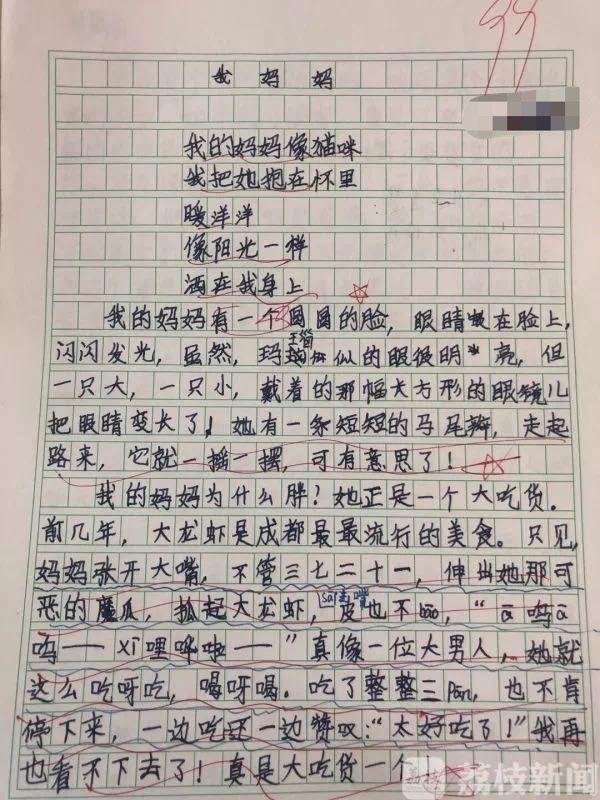 99
我 妈 妈
我的妈妈像猫咪
我把她抱在怀里
暖洋洋
像阳光一样
洒在我身上
我的妈妈有一个圆圆的脸，眼睛在脸上，
闪闪发光，虽然，玛瑙似的眼很明亮，但
一只大，一只小，戴着的那幅大方形的眼镜儿
把眼睛变长了！她有一条短短的马尾辫，走起
路来，它就一摇一摆，可有意思了！
我的妈妈为什么胖？她正是一个大吃货。
前几年，大龙虾是成都最最流行的美食。只见，
妈妈张开大嘴，不管三七二十一，伸出她那可
恶的魔爪，抓起大龙虾，皮也不bāo，“ā呜ā
呜——xī哩哗啦——”真像一位大男人，她就
这么吃呀吃，喝呀喝。吃了整整三pán，也不肯
停下来，一边吃还一边赞叹：“太好吃了！”我再
也看不下去了！真是大吃货一个
荔枝新闻